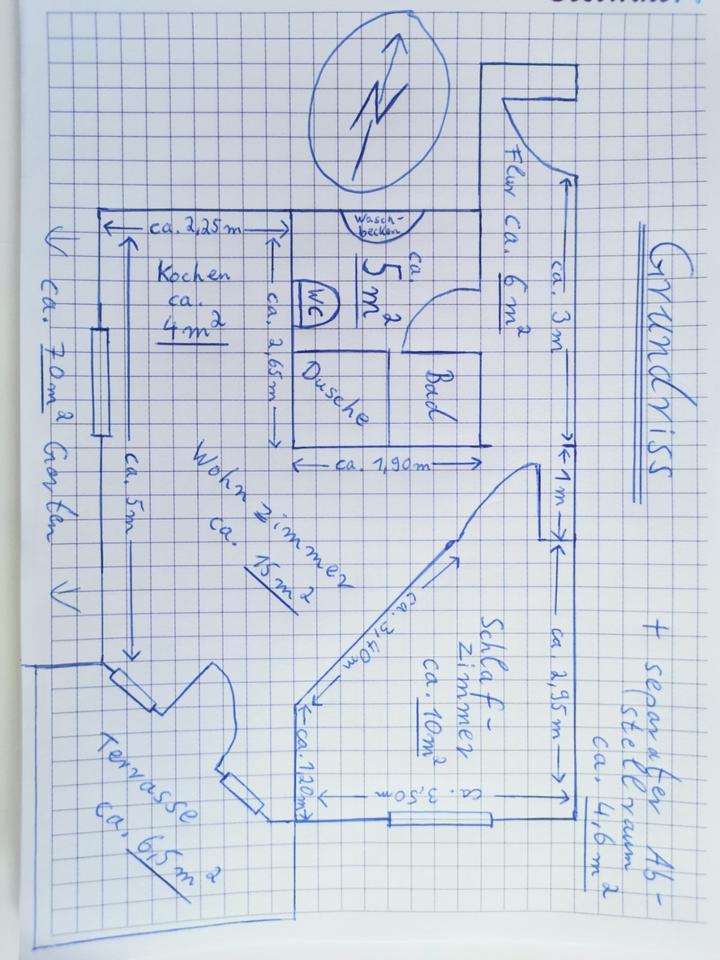 Grundriss
+ separater Ab-
stellraum
ca. 4,6 m²
Flur ca. 6 m²
ca. 3 m
1 m
ca. 2,95 m
Wasch-
becken
ca.
5 m²
WC
Dusche
Bad
ca. 1,90 m
ca. 2,65 m
ca. 2,25 m
Kochen
ca.
4 m²
ca. 5 m
Wohnzimmer
ca. 15 m²
Schlaf-
zimmer
ca. 10 m²
ca. 3,40 m
ca. 1,20 m
ca. 3,50 m
Terrasse
ca. 6,5 m²
ca. 70 m² Garten
N